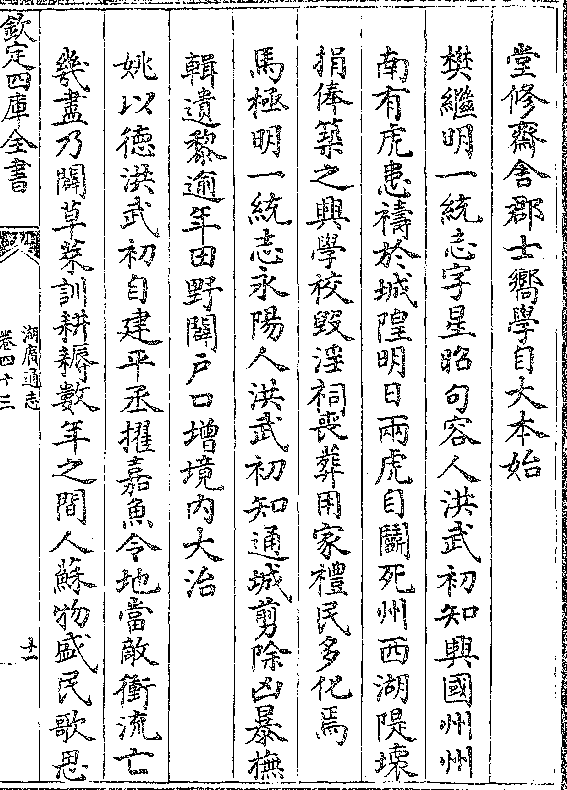 堂修齋舍郡士嚮學自大本始
樊繼明一統志字星昭句容人洪武初知興國州州
南有虎患禱於城隍明日兩虎自鬬死州西湖隄壊
捐俸築之興學校毁淫祠喪葬用家禮民多化焉
馬極明一統志永陽人洪武初知通城剪除凶暴撫
輯遺黎逾年田野闢戶口增境内大治
姚以德洪武初自建平丞擢嘉魚令地當敵衝流亡
幾盡乃闢草萊訓耕耨數年之間人蘇物盛民歌思
欽定四庫全書
湖廣通志
卷四十三
十一